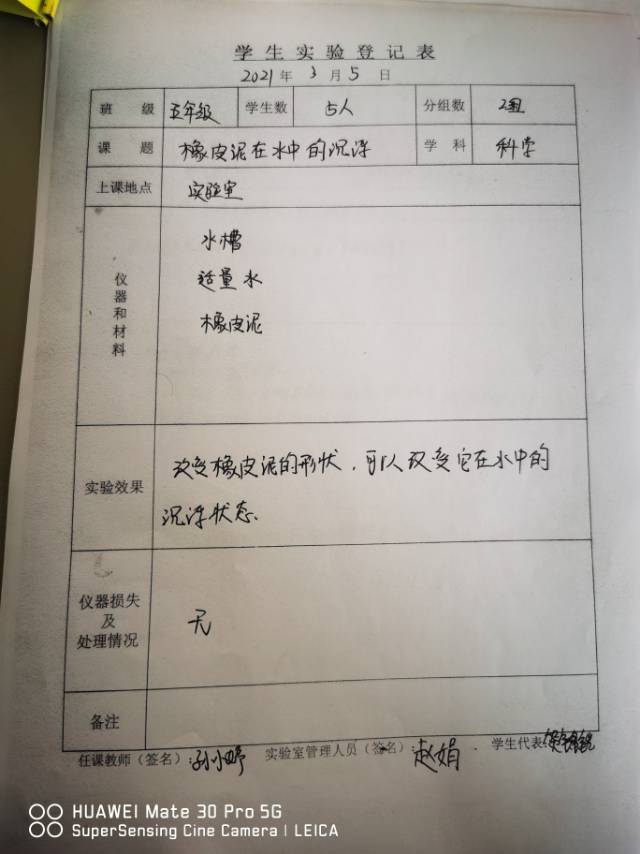 学生实验登记表
2021年3月5日
班级 五年级 学生数 5人 分组数 2组
课题 橡皮泥在水中的沉浮 学科 科学
上课地点 实验室
仪器和材料
水槽
适量水
橡皮泥
实验效果
改变橡皮泥的形状，可以改变它在水中的
沉浮状态.
仪器损失
及
处理情况
无
备注
任课教师（签名）：孙小婷 实验室管理人员（签名）：赵娟 学生代表
HUAWEI Mate 30 Pro 5G
SuperSensing Cine Camera | LEICA